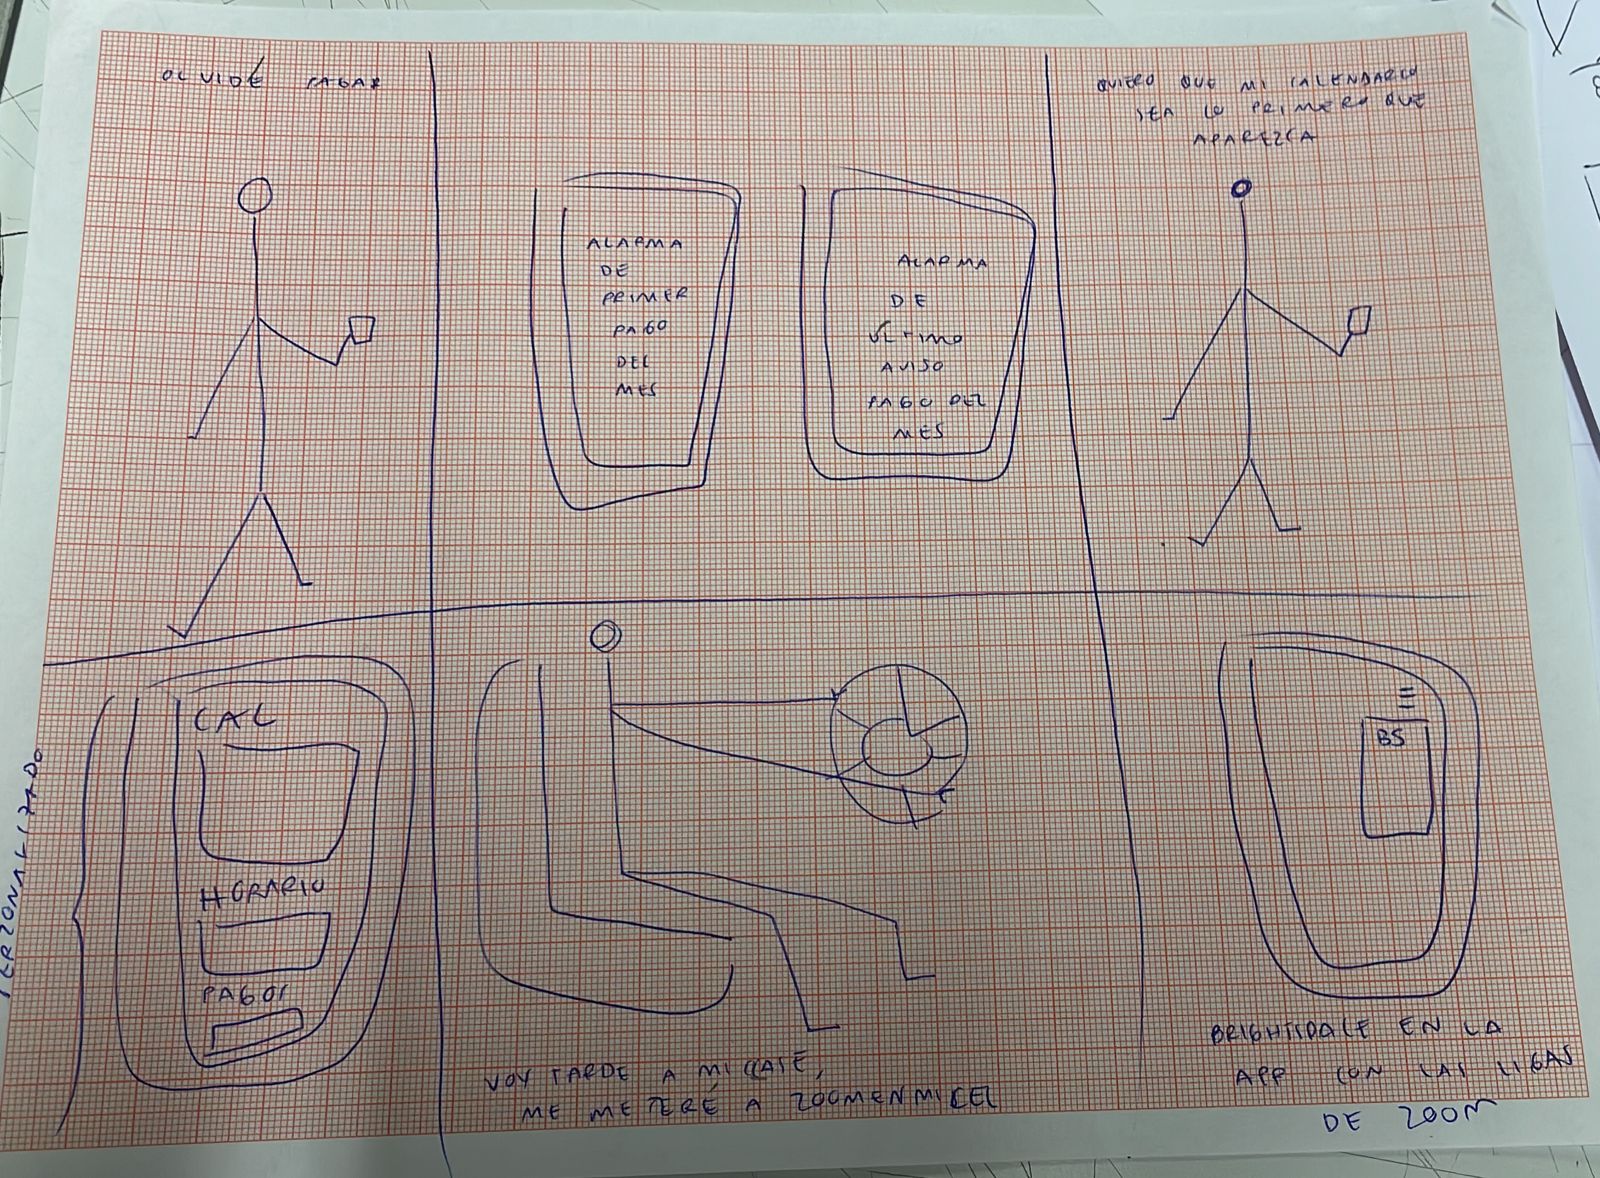 OLVIDÉ PAGAR
ALARMA
DE
PRIMER
PAGO
DEL
MES
ALARMA
DE
ÚLTIMO
AVISO
PAGO DEL
MES
QUIERO QUE MI CALENDARIO
SEA LO PRIMERO QUE
APAREZCA
PERZONALIZADO
CAL
HORARIO
PAGOS
VOY TARDE A MI CLASE,
ME METERÉ A ZOOM EN MI CEL
BS
BRIGHTSDALE EN LA
APP CON LAS LIGAS
DE ZOOM